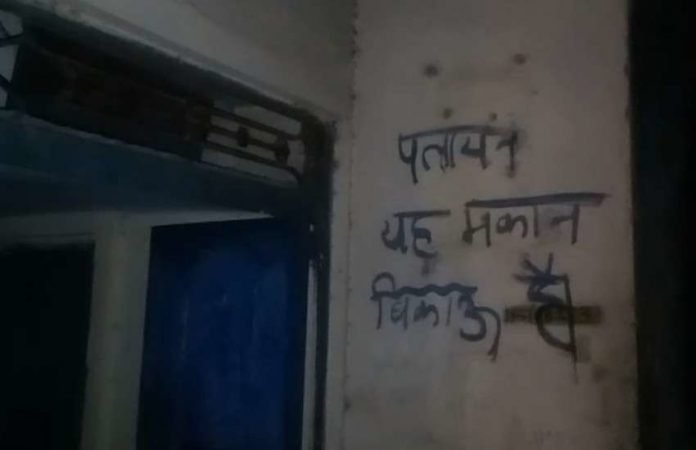 पलायन
यह मकान
बिकाऊ है